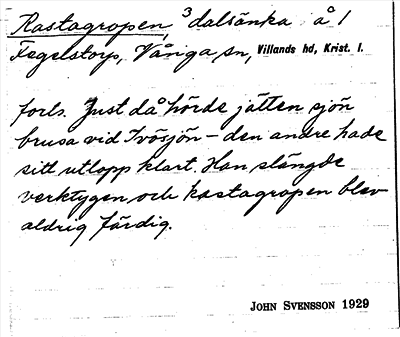 Kastagropen, 3 dalsänka å 1
Fegelstorp, Vånga sn, Villands hd, Krist. l.
forts. Just då hörde jätten sjön
brusa vid Ivösjön – den andre hade
sitt utlopp klart. Han slängde
verktygen och kastagropen blev
aldrig färdig.
JOHN SVENSSON 1929